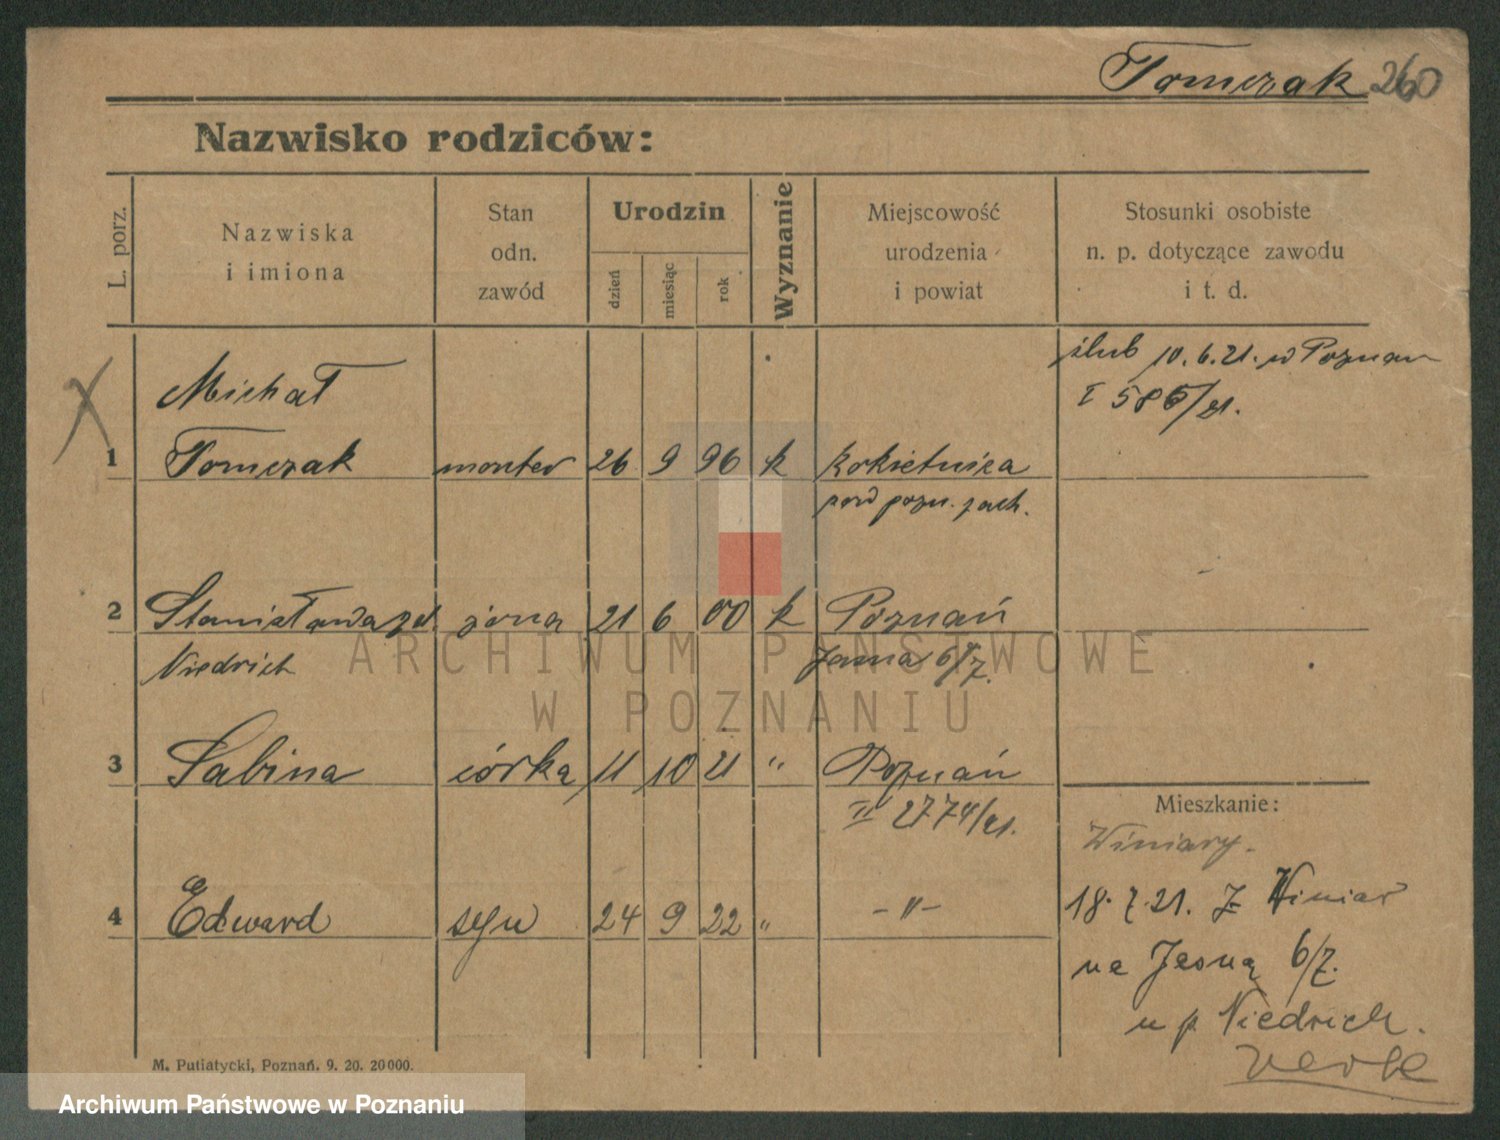 Tomczak 260
Nazwisko rodziców:
L. porz.
Nazwiska
i imiona
Stan
odn.
zawód
Urodzin
dzień
miesiąc
rok
Wyznanie
Miejscowość
urodzenia
i powiat
Stosunki osobiste
n. p. dotyczące zawodu
i t. d.
ślub 10.6.21. w Poznan
Michał
1 Tomczak monter 26 9 96 k Rokietnica
pozn. zach.
2 Stanisława zd żona 21 6 00 k Poznań
Niedrich Jasna 6/7.
3 Sabina córka 11 10 21 " Poznań
II 2774/21.
Mieszkanie:
Winiary.
4 Edward syn 24 9 22 " -"-
18.7.21. Z Winiar
na Jasną 6/7.
u p. Niedrich.
M. Putiatycki, Poznań. 9. 20. 20000.
ARCHIWUM PAŃSTWOWE
W POZNANIU
Archiwum Państwowe w Poznaniu